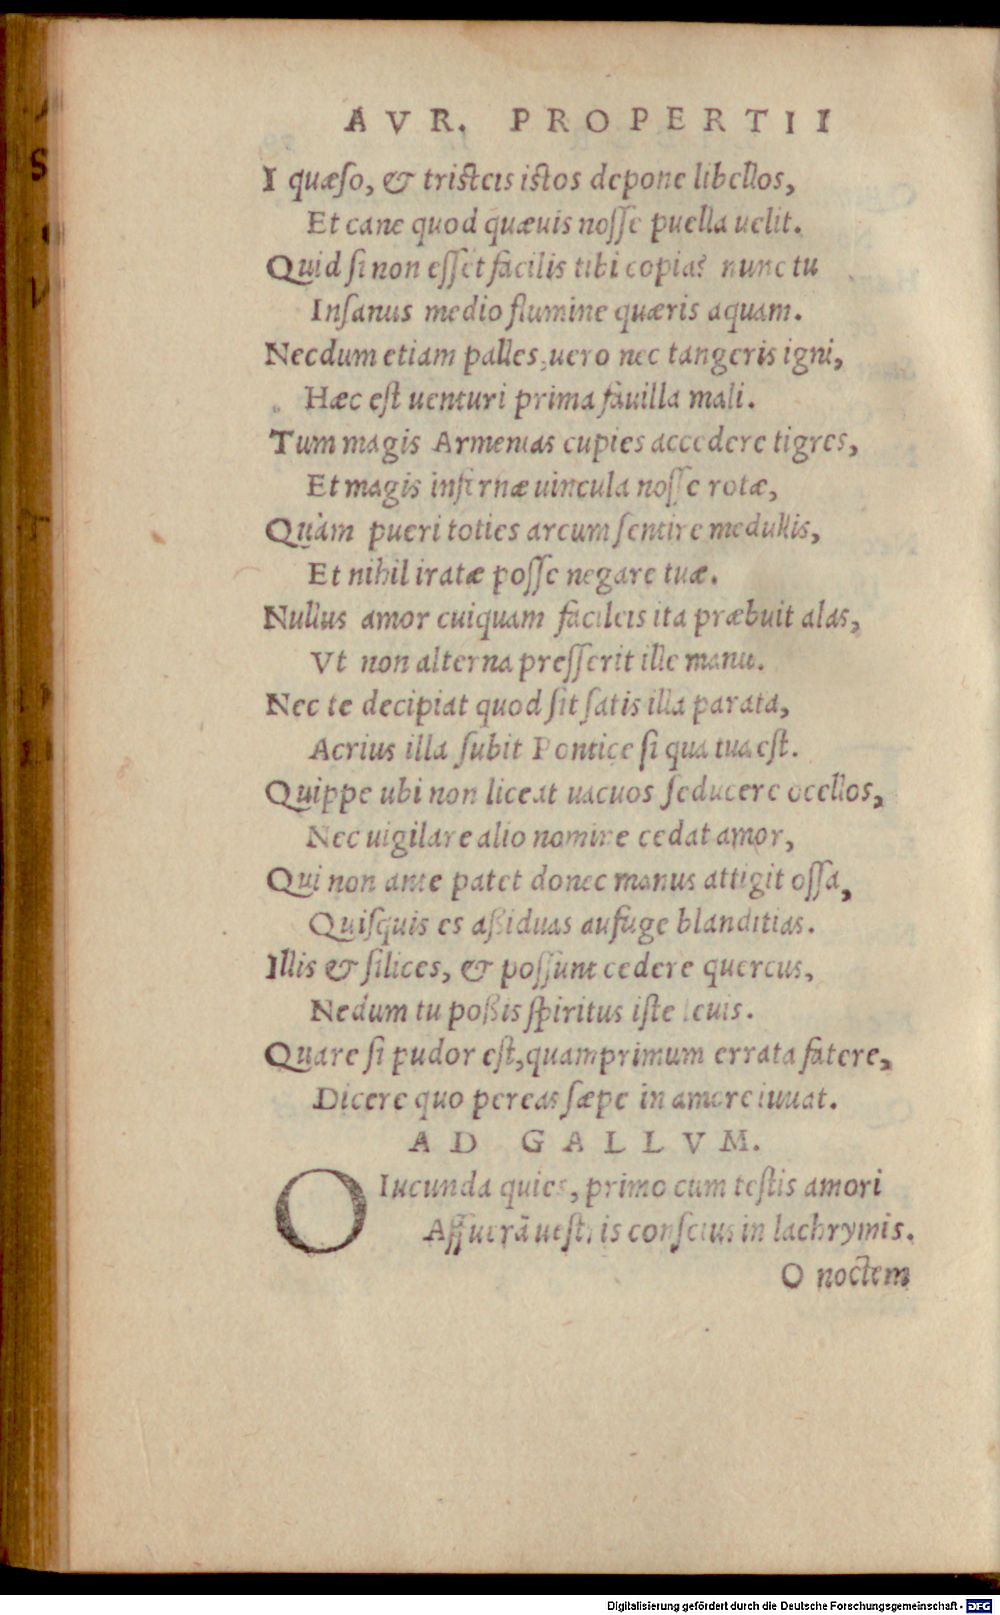 AVR. PROPERTII
I quæſo, & triſteis iſtos depone libellos,
Et cane quod quæuis noſſe puella uelit.
Quid ſi non eſſet facilis tibi copia? nunc tu
Inſanus medio flumine quæris aquam.
Necdum etiam palles, uero nec tangeris igni,
Hæc eſt uenturi prima fauilla mali.
Tum magis Armenias cupies accedere tigres,
Et magis infernæ uincula noſſe rotæ,
Quàm pueri toties arcum ſentire medullis,
Et nihil iratæ poſſe negare tuæ.
Nullus amor cuiquam facileis ita præbuit alas,
Vt non alterna preſſerit ille manu.
Nec te decipiat quod ſit ſatis illa parata,
Acrius illa ſubit Pontice ſi qua tua eſt.
Quippe ubi non liceat uacuos ſeducere ocellos,
Nec uigilare alio nomine cedat amor,
Qui non ante patet donec manus attigit oſſa,
Quiſquis es aßiduas aufuge blanditias.
Illis & ſilices, & poſſunt cedere quercus,
Nedum tu poßis ſpiritus iſte leuis.
Quare ſi pudor eſt, quamprimum errata fatere,
Dicere quo pereas ſæpe in amore iuuat.
AD GALLVM.
O Iucunda quies, primo cum teſtis amori
Affuerā ueſtris conſcius in lachrymis.
O noctem
Digitalisierung gefördert durch die Deutsche Forschungsgemeinschaft - DFG